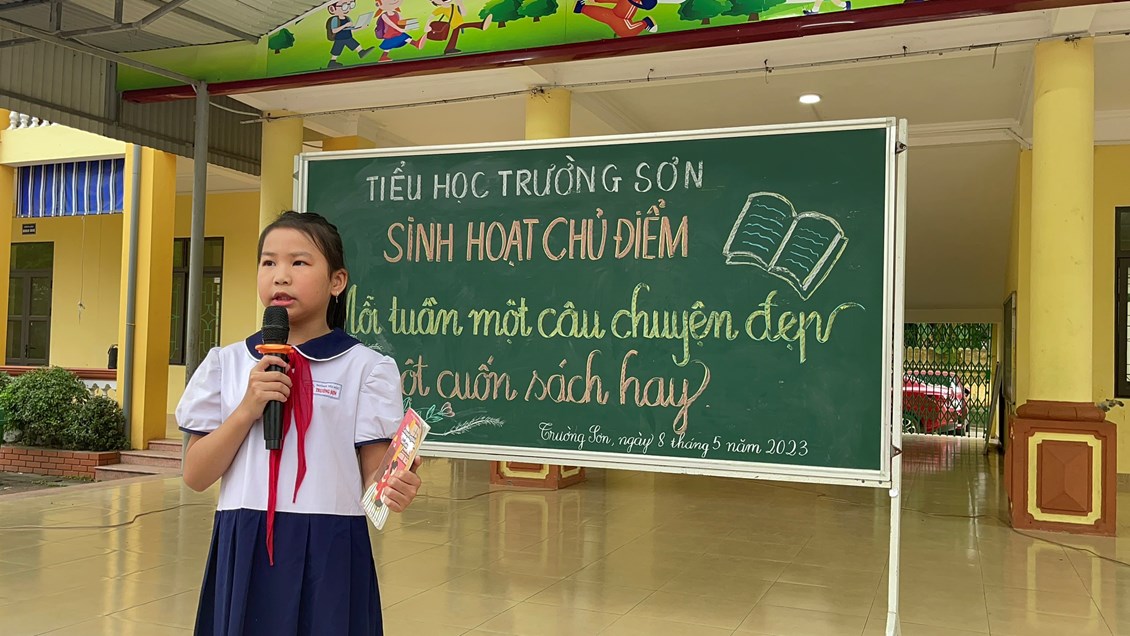 TIỂU HỌC TRƯỜNG SƠN
SINH HOẠT CHỦ ĐIỂM
Mỗi tuần một câu chuyện đẹp
một cuốn sách hay
Trường Sơn, ngày 8 tháng 5 năm 2023
TRƯỜNG SƠN